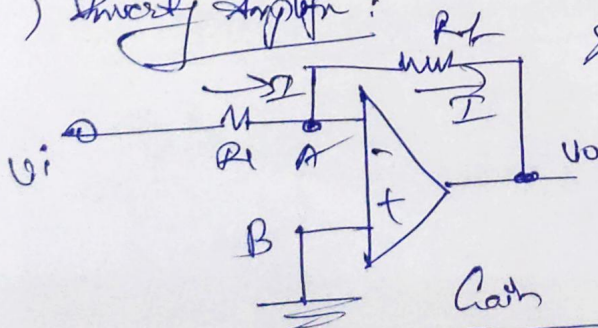 ) Inverting Amplifier :
Rf
I
I
Vi
R1
A
-
Vo
+
B
Gain